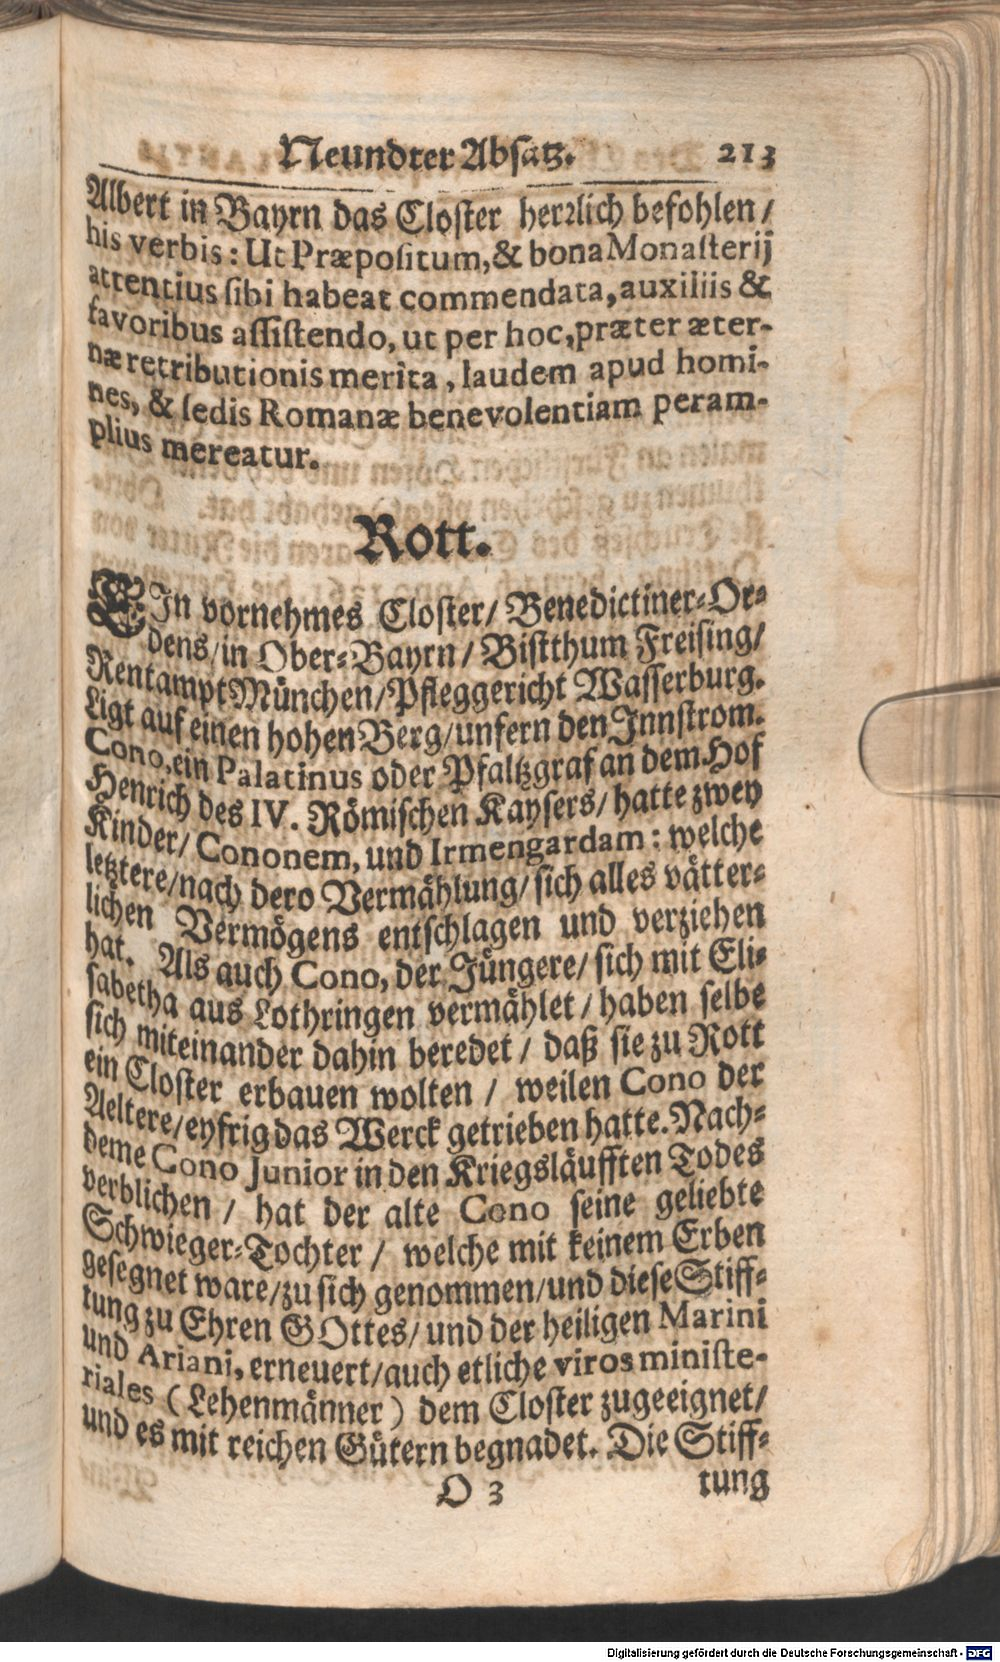 Neundter Absatz. 213
Albert in Bayrn das Closter herrlich befohlen /
his verbis: Ut Præpositum, & bona Monasterij
attentius sibi habeat commendata, auxiliis &
favoribus assistendo, ut per hoc, præter æter-
næ retributionis merita, laudem apud homi-
nes, & sedis Romanæ benevolentiam peram-
plius mereatur.
Rott.
EIn vornehmes Closter / Benedictiner-Or-
dens / in Ober-Bayrn / Bistthum Freising /
Rentampt München / Pfleggericht Wasserburg.
Ligt auf einen hohen Berg / unfern den Innstrom.
Cono, ein Palatinus oder Pfaltzgraf an dem Hof
Henrich des IV. Römischen Kaysers / hatte zwey
Kinder / Cononem, und Irmengardam: welche
letztere / nach dero Vermählung / sich alles vätter-
lichen Vermögens entschlagen und verziehen
hat. Als auch Cono, der Jüngere / sich mit Eli-
sabetha aus Lothringen vermählet / haben selbe
sich miteinander dahin beredet / daß sie zu Rott
ein Closter erbauen wolten / weilen Cono der
Aeltere / eyfrig das Werck getrieben hatte. Nach-
deme Cono Junior in den Kriegsläufften Todes
verblichen / hat der alte Cono seine geliebte
Schwieger-Tochter / welche mit keinem Erben
gesegnet ware / zu sich genommen / und diese Stiff-
tung zu Ehren GOttes / und der heiligen Marini
und Ariani, erneuert / auch etliche viros ministe-
riales (Lehenmänner) dem Closter zugeeignet /
und es mit reichen Gütern begnadet. Die Stiff-
O 3 tung
Digitalisierung gefördert durch die Deutsche Forschungsgemeinschaft - DFG